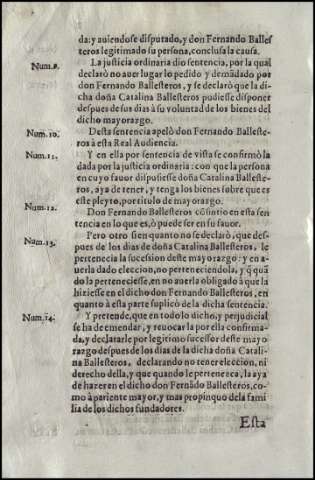 da: y auiendose disputado, y don Fernando Balles-
teros legitimado su persona, conclusa la causa.
Num.9. La justicia ordinaria dio sentencia, por la qual
declarò no auer lugar lo pedido y demãdado por
don Fernando Ballesteros, y se declarò que la di-
cha doña Catalina Ballesteros pudiesse disponer
despues de sus dias à su voluntad de los bienes del
dicho mayorazgo.
Num.10. Desta sentencia apelò don Fernando Balleste-
ros à esta Real Audiencia.
Num.11. Y en ella por sentencia de vista se confirmò la
dada por la justicia ordinaria: con que la persona
en cuyo fauor dispusiesse doña Catalina Balleste-
ros, aya de tener, y tenga los bienes sobre que es
este pleyto, por titulo de mayorazgo.
Num.12. Don Fernando Ballesteros cõsintio en esta sen
tencia en lo que es, ò puede ser en su fauor.
Num.13. Pero otro si en quanto no se declarò, que des-
pues de los dias de doña Catalina Ballesteros, le
pertenecia la sucession deste mayorazgo: y en a-
uerla dado eleccion, no perteneciendola, y q̃ quã
do la perteneciesse, en no auerla obligado à que la
hiziesse en el dicho don Fernando Ballesteros, en
quanto à esta parte suplicò de la dicha sentencia.
Num.14. Y pretende, que en todo lo dicho, y perjudicial
se ha de emendar, y reuocar la por ella confirma-
da, y declararle por legitimo sucessor deste mayo
razgo despues de los dias de la dicha doña Catali-
na Ballesteros, declarando no tener eleccion, ni
derecho della, y que quando le pertenezca, la aya
de hazer en el dicho don Fernãdo Ballesteros, co-
mo à pariente mayor, y mas propinquo de la fami
lia de los dichos fundadores.
Esta